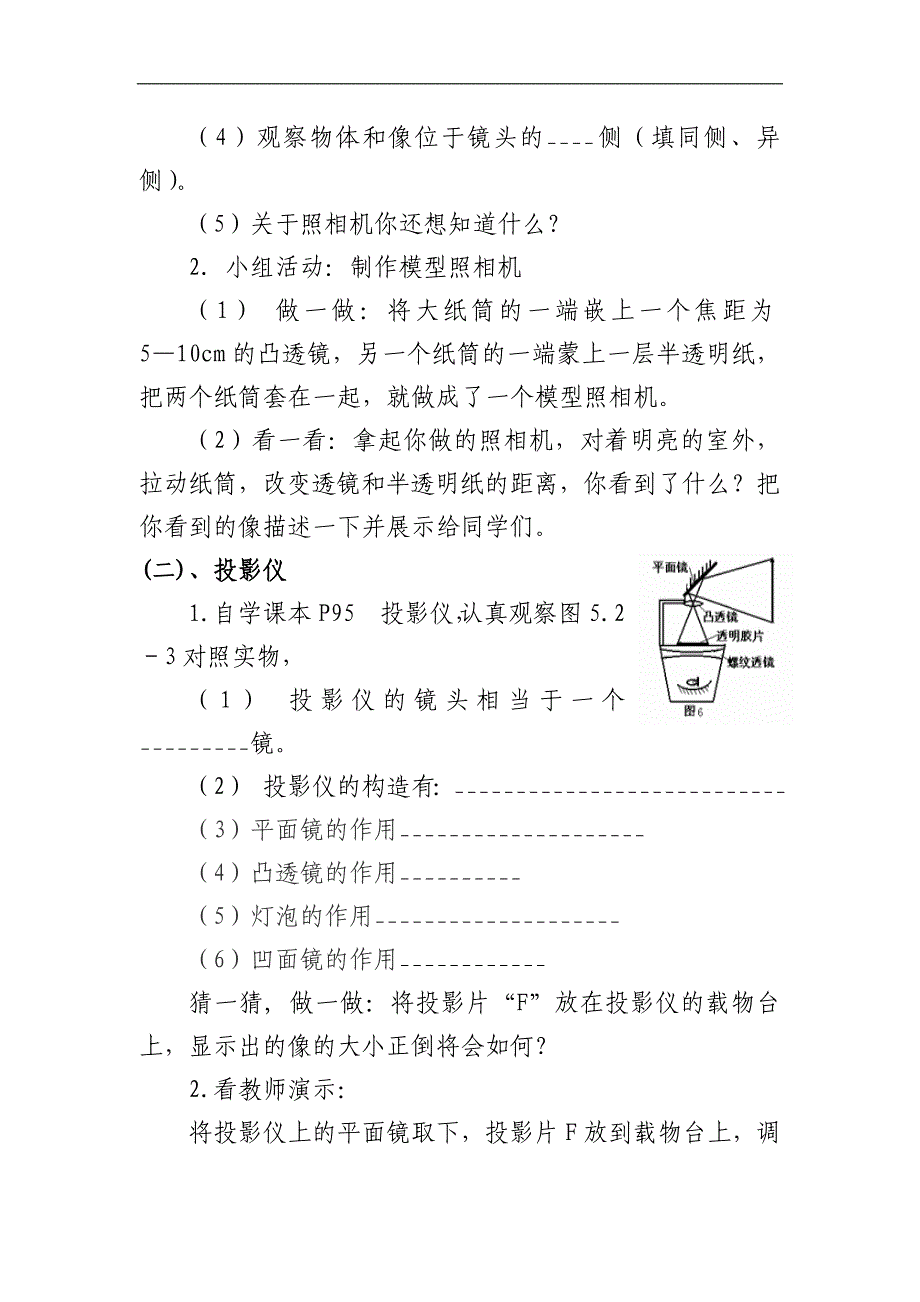 （4）观察物体和像位于镜头的____侧（填同侧、异
侧）。
（5）关于照相机你还想知道什么？
2. 小组活动：制作模型照相机
（1） 做一做：将大纸筒的一端嵌上一个焦距为
5—10cm的凸透镜，另一个纸筒的一端蒙上一层半透明纸，
把两个纸筒套在一起，就做成了一个模型照相机。
（2）看一看：拿起你做的照相机，对着明亮的室外，
拉动纸筒，改变透镜和半透明纸的距离，你看到了什么？把
你看到的像描述一下并展示给同学们。
(二)、投影仪
1.自学课本P95 投影仪,认真观察图5.2
－3对照实物，
（1） 投影仪的镜头相当于一个
_________镜。
平面镜
凸透镜
透明胶片
螺纹透镜
图6
（2） 投影仪的构造有：___________________________
（3）平面镜的作用____________________
（4）凸透镜的作用__________
（5）灯泡的作用____________________
（6）凹面镜的作用____________
猜一猜，做一做：将投影片“F”放在投影仪的载物台
上，显示出的像的大小正倒将会如何？
2.看教师演示：
将投影仪上的平面镜取下，投影片F放到载物台上，调